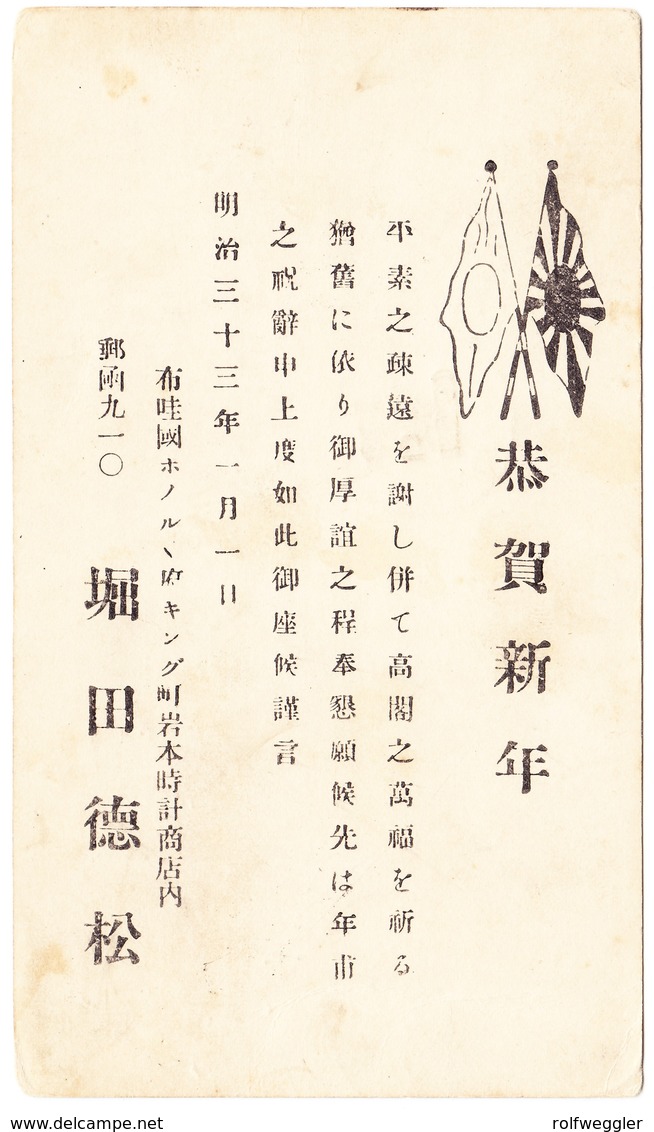 恭賀新年
平素之疎遠を謝し併て高閣之萬福を祈る
猶舊に依り御厚誼之程奉懇願候先は年甫
之祝辭申上度如此御座候謹言
明治三十三年一月一日
布哇國ホノルヽ府キング町岩本時計商店内
郵函九一〇
堀田德松
www.delcampe.net
rolfweggler